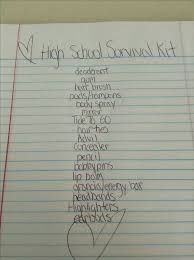 High School Survival Kit
deodorant
gum
hair brush
pads/tampons
body spray
mirror
Tide to GO
hair ties
Advil
concealer
pencil
bobby pins
lip balm
snacks/energy bar
headbands
Highlighters
earbuds